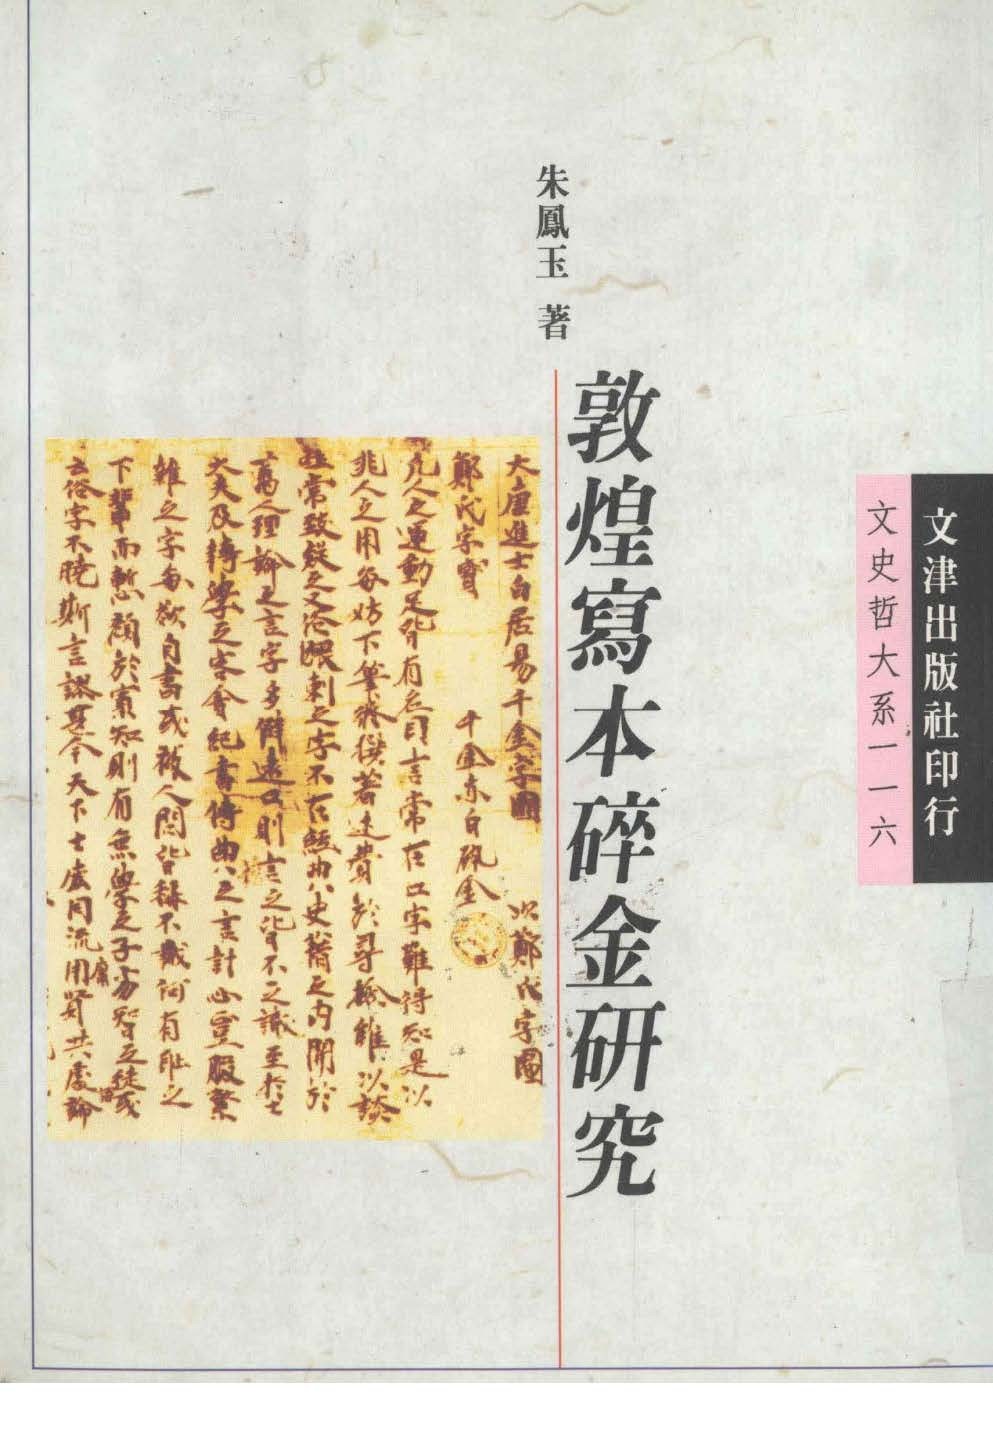 文津出版社印行
文史哲大系一一六
敦煌寫本碎金研究
朱鳳玉 著
大唐進士白居易千金字圖 次鄭氏字圖
鄭氏字寶 千金亦曰碎金
凡人之運動足皆有名目言常在口字難得知是以
兆人之用每妨下筆修撰著述費於尋檢雖以談
常致疑之又俗猥剌之字不在經典史籍之內聞於
萬人理論之言字多僻遠口則言之皆不之識至於士
大夫及轉學之客貪紀書傳典之言計心豈暇繁
雜之字每欲自書或被人問皆稱不識何有恥之
下輩而慙顏於寡知則有無學之子劣智之徒或
云俗字不曉斯言謬甚今天下士庶同流庸賢共處論